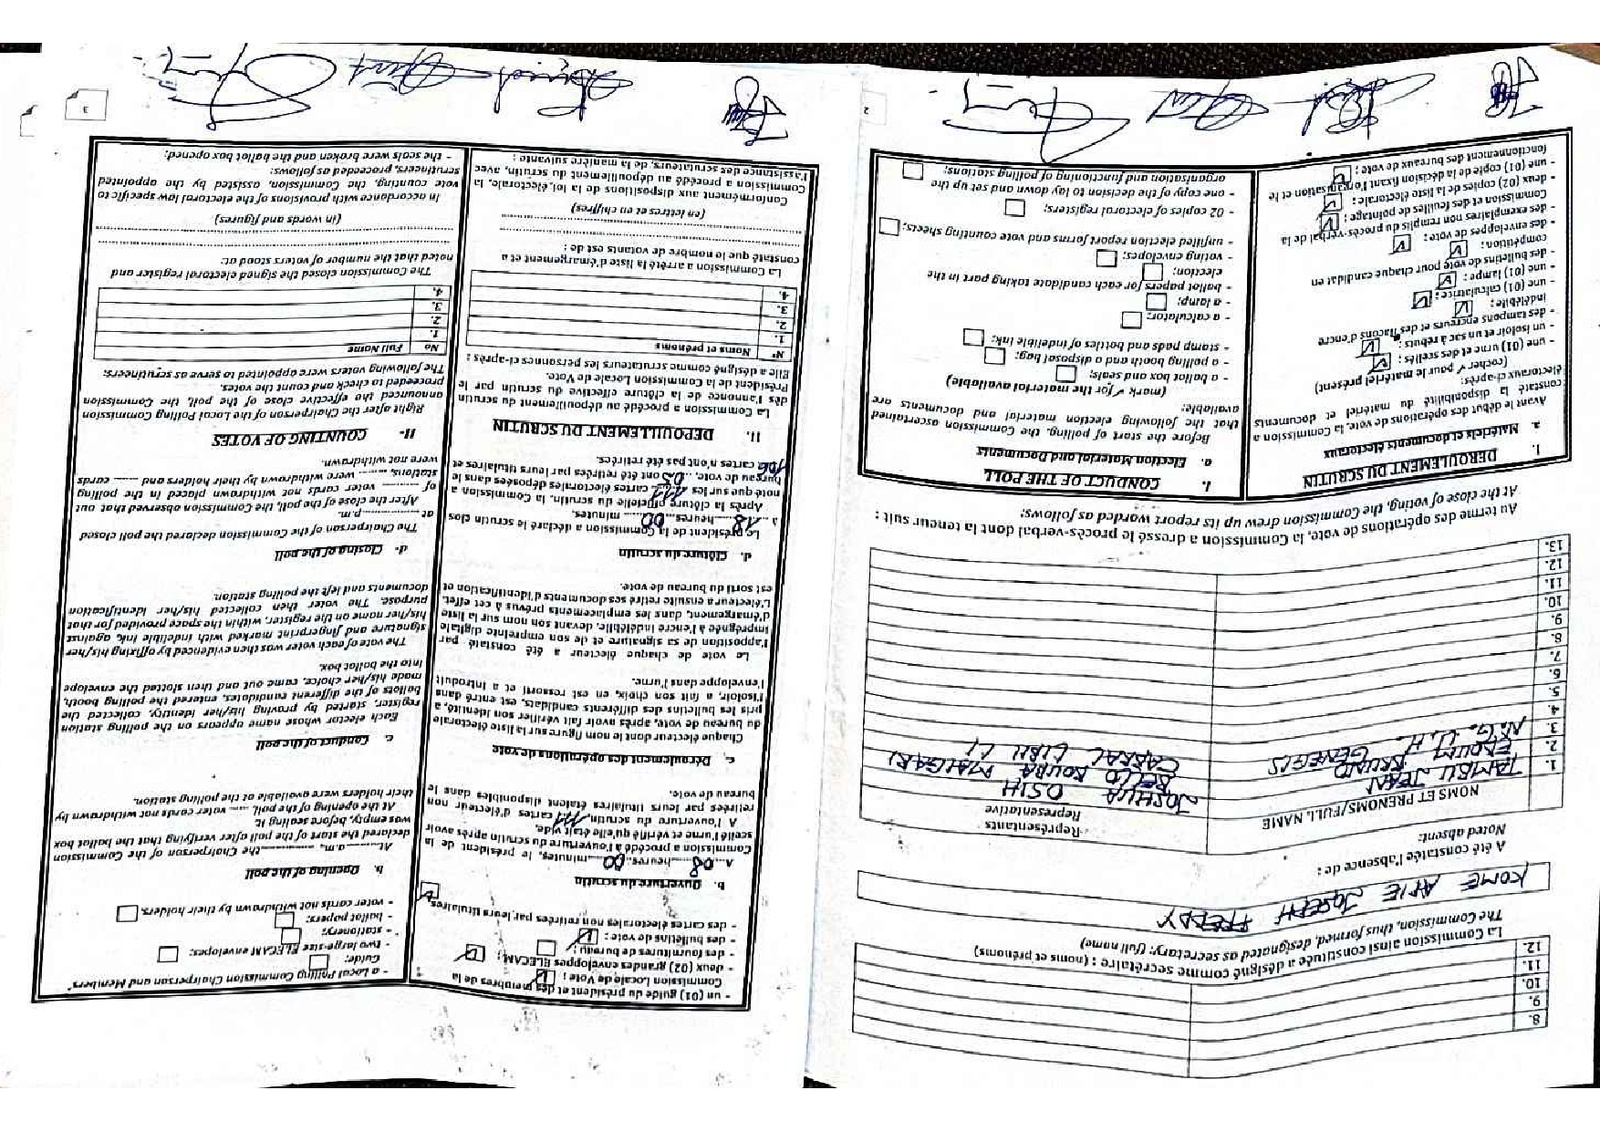 8.
9.
10.
11.
12.
La Commission ainsi constituée a désigné comme secrétaire : (noms et prénoms)
The Commission, thus formed, designated as secretary: (full name)
KOME APIE JOSEPH FREDDY
A été constatée l'absence de :
Noted absent:
NOMS ET PRENOMS/FULL NAME
Représentants
Representative
1. TAMBU JEAN JOSHUA OSIH
2. BRUNO BELLO BOUBA MAIGARI
3. N.G. U.H. CABRAL LIBII LI
4.
5.
6.
7.
8.
9.
10.
11.
12.
13.
Au terme des opérations de vote, la Commission a dressé le procès-verbal dont la teneur suit :
At the close of voting, the Commission drew up its report worded as follows:
I. DEROULEMENT DU SCRUTIN
a. Matériels et documents électoraux
Avant le début des opérations de vote, la Commission a
constaté la disponibilité du matériel et documents
électoraux ci-après:
(cocher ✓ pour le matériel présent)
- une (01) urne et des scellés :
- un isoloir et un sac à rebuts :
- des tampons encreurs et des flacons d'encre
indélébile :
- une (01) calculatrice :
- une (01) lampe :
- des bulletins de vote pour chaque candidat en
compétition :
- des enveloppes de vote :
- des exemplaires non remplis du procès-verbal de la
Commission et des feuilles de pointage :
- deux (02) copies de la liste électorale :
- une (01) copie de la décision fixant l'organisation et le
fonctionnement des bureaux de vote :
I. CONDUCT OF THE POLL
a. Election Material and Documents
Before the start of polling, the Commission ascertained
that the following election material and documents are
available:
(mark ✓ for the material available)
- a ballot box and seals;
- a polling booth and a disposal bag;
- stamp pads and bottles of indelible ink;
- a calculator;
- a lamp;
- ballot papers for each candidate taking part in the
election;
- voting envelopes;
- unfilled election report forms and vote counting sheets;
- 02 copies of electoral registers;
- one copy of the decision to lay down and set up the
organisation and functioning of polling stations;
2
- un (01) guide du président et des membres de la
Commission Locale de Vote :
- deux (02) grandes enveloppes ELECAM :
- des fournitures de bureau :
- des bulletins de vote :
- des cartes électorales non retirées par leurs titulaires.
b. Ouverture du scrutin
A 08 heures 00 minutes, le président de la
Commission a procédé à l'ouverture du scrutin après avoir
scellé l'urne et vérifié qu'elle était vide.
A l'ouverture du scrutin 111 cartes d'électeur non
retirées par leurs titulaires étaient disponibles dans le
bureau de vote.
c. Déroulement des opérations de vote
Chaque électeur dont le nom figure sur la liste électorale
du bureau de vote, après avoir fait vérifier son identité, a
pris les bulletins des différents candidats, est entré dans
l'isoloir, a fait son choix, en est ressorti et a introduit
l'enveloppe dans l'urne.
Le vote de chaque électeur a été constaté par
l'apposition de sa signature et de son empreinte digitale
imprégnée à l'encre indélébile, devant son nom sur la liste
d'émargement, dans les emplacements prévus à cet effet.
L'électeur a ensuite retiré ses documents d'identification et
est sorti du bureau de vote.
d. Clôture du scrutin
Le président de la Commission a déclaré le scrutin clos
à 18 heures 00 minutes.
Après la clôture officielle du scrutin, la Commission a
noté que sur les 111 cartes électorales déposées dans le
bureau de vote, 05 ont été retirées par leurs titulaires et
106 cartes n'ont pas été retirées.
II. DEPOUILLEMENT DU SCRUTIN
La Commission a procédé au dépouillement du scrutin
dès l'annonce de la clôture effective du scrutin par le
Président de la Commission Locale de Vote.
Elle a désigné comme scrutateurs les personnes ci-après :
N° Noms et prénoms
1.
2.
3.
4.
La Commission a arrêté la liste d'émargement et a
constaté que le nombre de votants est de :
(en lettres et en chiffres)
Conformément aux dispositions de la loi électorale, la
Commission a procédé au dépouillement du scrutin, avec
l'assistance des scrutateurs, de la manière suivante :
- a Local Polling Commission Chairperson and Members'
Guide;
- two large-size ELECAM envelopes;
- stationery;
- ballot papers;
- voter cards not withdrawn by their holders.
b. Opening of the poll
At ........a.m, ............the Chairperson of the Commission
declared the start of the poll after verifying that the ballot box
was empty, before sealing it.
At the opening of the poll, ..... voter cards not withdrawn by
their holders were available at the polling station.
c. Conduct of the poll
Each elector whose name appears on the polling station
register, started by proving his/her identity, collected the
ballots of the different candidates, entered the polling booth,
made his/her choice, came out and then slotted the envelope
into the ballot box.
The vote of each voter was then evidenced by affixing his/her
signature and fingerprint marked with indelible ink, against
his/her name on the register, within the space provided for that
purpose. The voter then collected his/her identification
documents and left the polling station.
d- Closing of the poll
The Chairperson of the Commission declared the poll closed
at ..................p.m.
After the close of the poll, the Commission observed that out
of ......... voter cards not withdrawn placed in the polling
stations, ........ were withdrawn by their holders and ...... cards
were not withdrawn.
II- COUNTING OF VOTES
Right after the Chairperson of the Local Polling Commission
announced the effective close of the poll, the Commission
proceeded to check and count the votes.
The following voters were appointed to serve as scrutineers:
No Full Name
1.
2.
3.
4.
The Commission closed the signed electoral register and
noted that the number of voters stood at:
(in words and figures)
In accordance with provisions of the electoral law specific to
vote counting, the Commission, assisted by the appointed
scrutineers, proceeded as follows:
- the seals were broken and the ballot box opened;
3